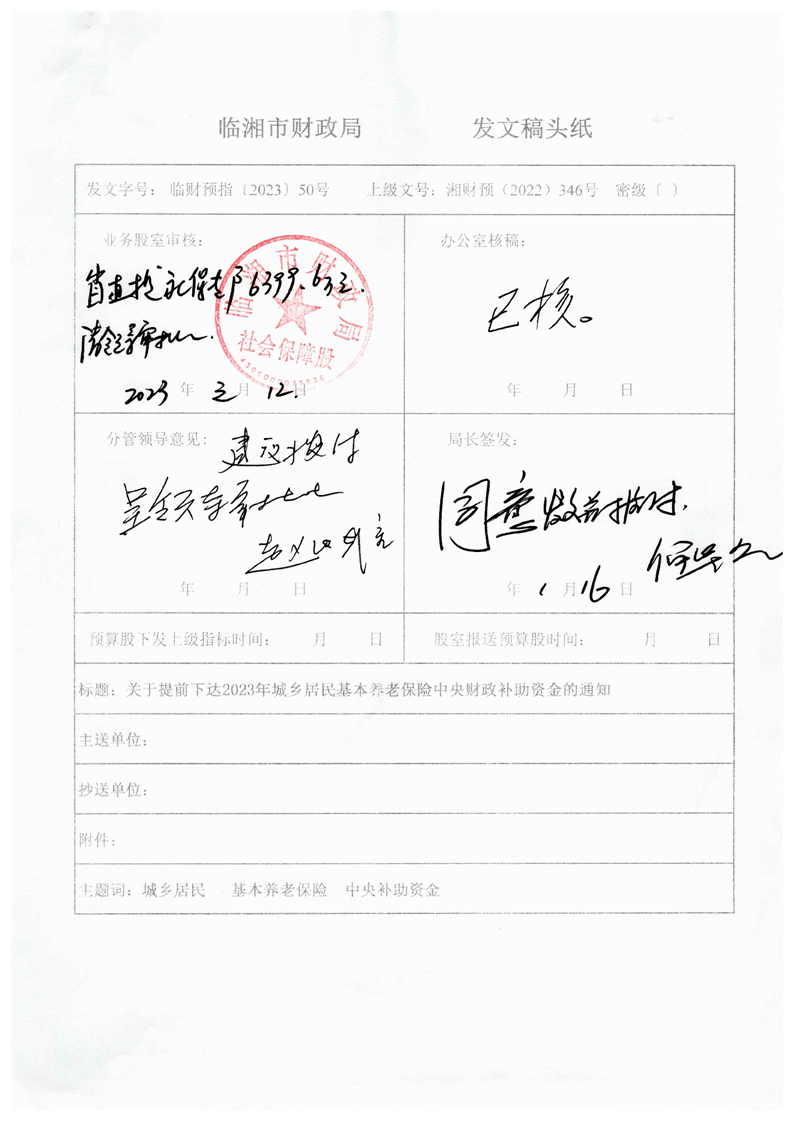 临湘市财政局 发文稿头纸
发文字号： 临财预指〔2023〕50号 上级文号：湘财预（2022）346号 密级〔 〕
业务股室审核：
临湘市财政局
社会保障股
2023 年 月 12 日
办公室核稿：
已核。
年 月 日
分管领导意见：
建议拨付
年 月 日
局长签发：
同意
年 1 月 16 日
预算股下发上级指标时间： 月 日
股室报送预算股时间： 月 日
标题：关于提前下达2023年城乡居民基本养老保险中央财政补助资金的通知
主送单位：
抄送单位：
附件：
主题词：城乡居民 基本养老保险 中央补助资金